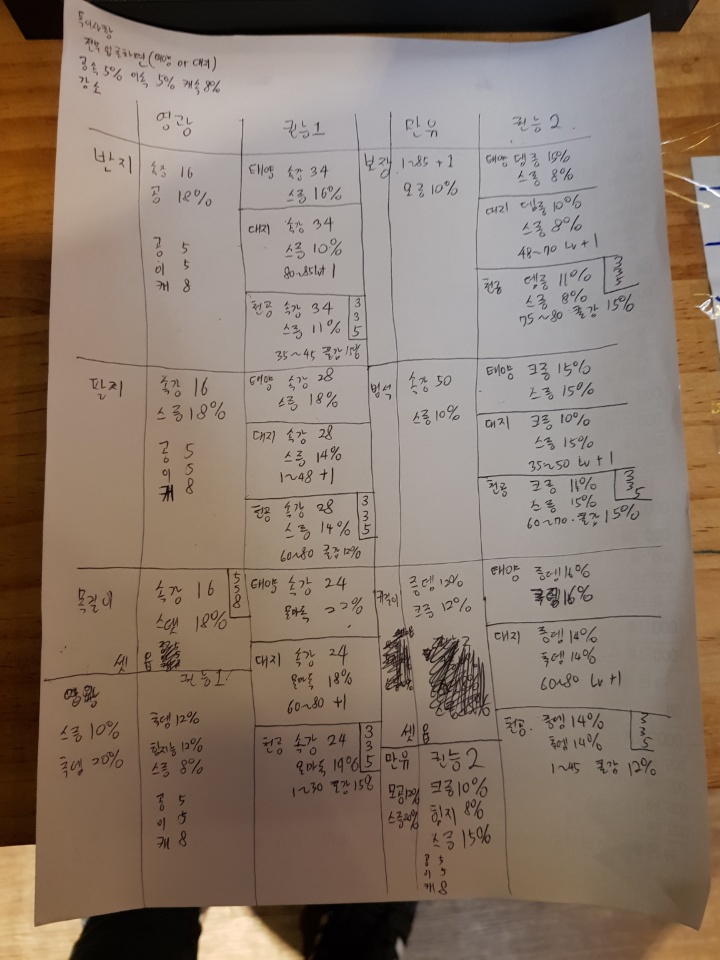 특이사항
전부 입국하면 (태양 or 대지)
공속 5% 이속 5% 캐속 8%
감소
영광
권능1
만유
권능2
반지
속강 16
공 18%
공 5
이 5
캐 8
태양 속강 34
스증 16%
대지 속강 34
스증 10%
80~85lv+1
천공 속강 34
스증 11%
3
3
5
35~45 쿨감 15%
보장
1~85 +1
모증 10%
태양 뎀증 15%
스증 8%
대지 뎀증 10%
스증 8%
48~70 lv +1
천공 뎀증 11%
스증 8%
3
3
5
75~80 쿨감 15%
팔지
속강 16
스증 18%
공 5
이 5
캐 8
태양 속강 28
스증 18%
대지 속강 28
스증 14%
1~48 +1
천공 속강 28
스증 14%
3
3
5
60~80 쿨감 12%
법석
속강 50
스증 10%
태양 크증 15%
스증 15%
대지 크증 10%
스증 15%
35~50 lv +1
천공 크증 11%
스증 15%
3
3
5
60~70 쿨감 15%
목걸이
속강 16
스탯 18%
5
5
8
태양 속강 24
물마독 22%
대지 속강 24
물마독 18%
60~80 +1
천공 속강 24
물마독 19%
3
3
5
1~30 쿨감 15%
귀걸이
증뎀 12%
크증 12%
태양 증뎀 16%
16%
대지 증뎀 14%
추뎀 14%
60~80 lv +1
천공 증뎀 14%
추뎀 14%
3
3
5
1~45 쿨감 12%
셋 옵
영광
스증 10%
추뎀 20%
권능1
추뎀 12%
힘지능 12%
스증 8%
공 5
이 5
캐 8
셋 옵
만유
모공 20%
스증 20%
권능2
크증 10%
힘지 8%
스증 15%
공 5
이 5
캐 8